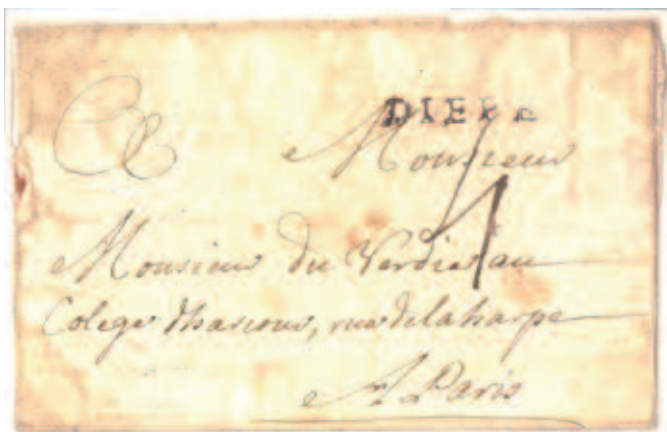 DIEPE
Monsieur
Monsieur du Verdier au
Colege dharcour, rue de la harpe
A Paris